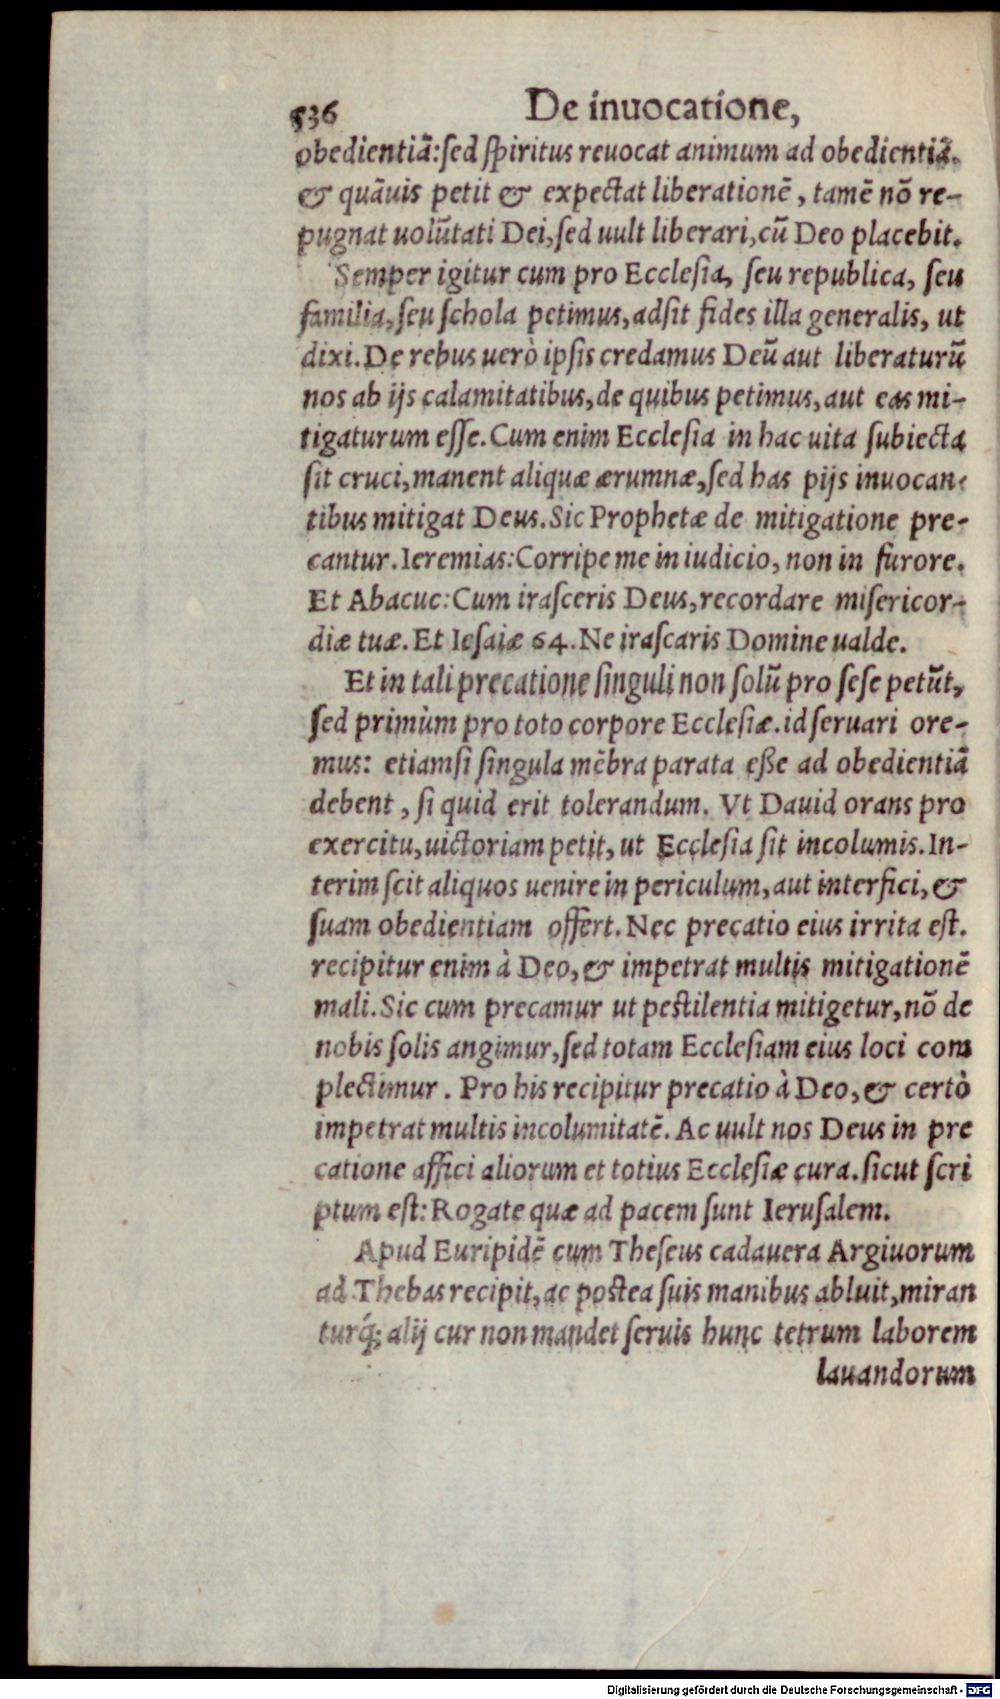 536 De inuocatione,
obedientiā:ſed ſpiritus reuocat animum ad obedientiā.
& quāuis petit & expectat liberationē, tamē nō re-
pugnat uolūtati Dei,ſed uult liberari,cū Deo placebit.
Semper igitur cum pro Eccleſia, ſeu republica, ſeu
familia,ſeu ſchola petimus,adſit fides illa generalis, ut
dixi.De rebus uerò ipſis credamus Deū aut liberaturū
nos ab ijs calamitatibus,de quibus petimus,aut eas mi-
tigaturum eſſe.Cum enim Eccleſia in hac uita ſubiecta
ſit cruci,manent aliquæ ærumnæ,ſed has pijs inuocan-
tibus mitigat Deus.Sic Prophetæ de mitigatione pre-
cantur.Ieremias:Corripe me in iudicio, non in furore.
Et Abacuc:Cum iraſceris Deus,recordare miſericor-
diæ tuæ.Et Ieſaiæ 64.Ne iraſcaris Domine ualde.
Et in tali precatione ſinguli non ſolū pro ſeſe petūt,
ſed primùm pro toto corpore Eccleſiæ.id ſeruari ore-
mus: etiamſi ſingula mēbra parata eſße ad obedientiā
debent, ſi quid erit tolerandum. Vt Dauid orans pro
exercitu,uictoriam petit,ut Eccleſia ſit incolumis.In-
terim ſcit aliquos uenire in periculum,aut interfici,&
ſuam obedientiam offert.Nec precatio eius irrita eſt.
recipitur enim à Deo,& impetrat multis mitigationē
mali.Sic cum precamur ut peſtilentia mitigetur,nō de
nobis ſolis angimur,ſed totam Eccleſiam eius loci com
plectimur. Pro his recipitur precatio à Deo,& certò
impetrat multis incolumitatē.Ac uult nos Deus in pre
catione affici aliorum et totius Eccleſiæ cura.ſicut ſcri
ptum eſt:Rogate quæ ad pacem ſunt Ieruſalem.
Apud Euripidē cum Theſeus cadauera Argiuorum
ad Thebas recipit,ac poſtea ſuis manibus abluit,miran
turq́; alij cur non mandet ſeruis hunc tetrum laborem
lauandorum
Digitalisierung gefördert durch die Deutsche Forschungsgemeinschaft - DFG